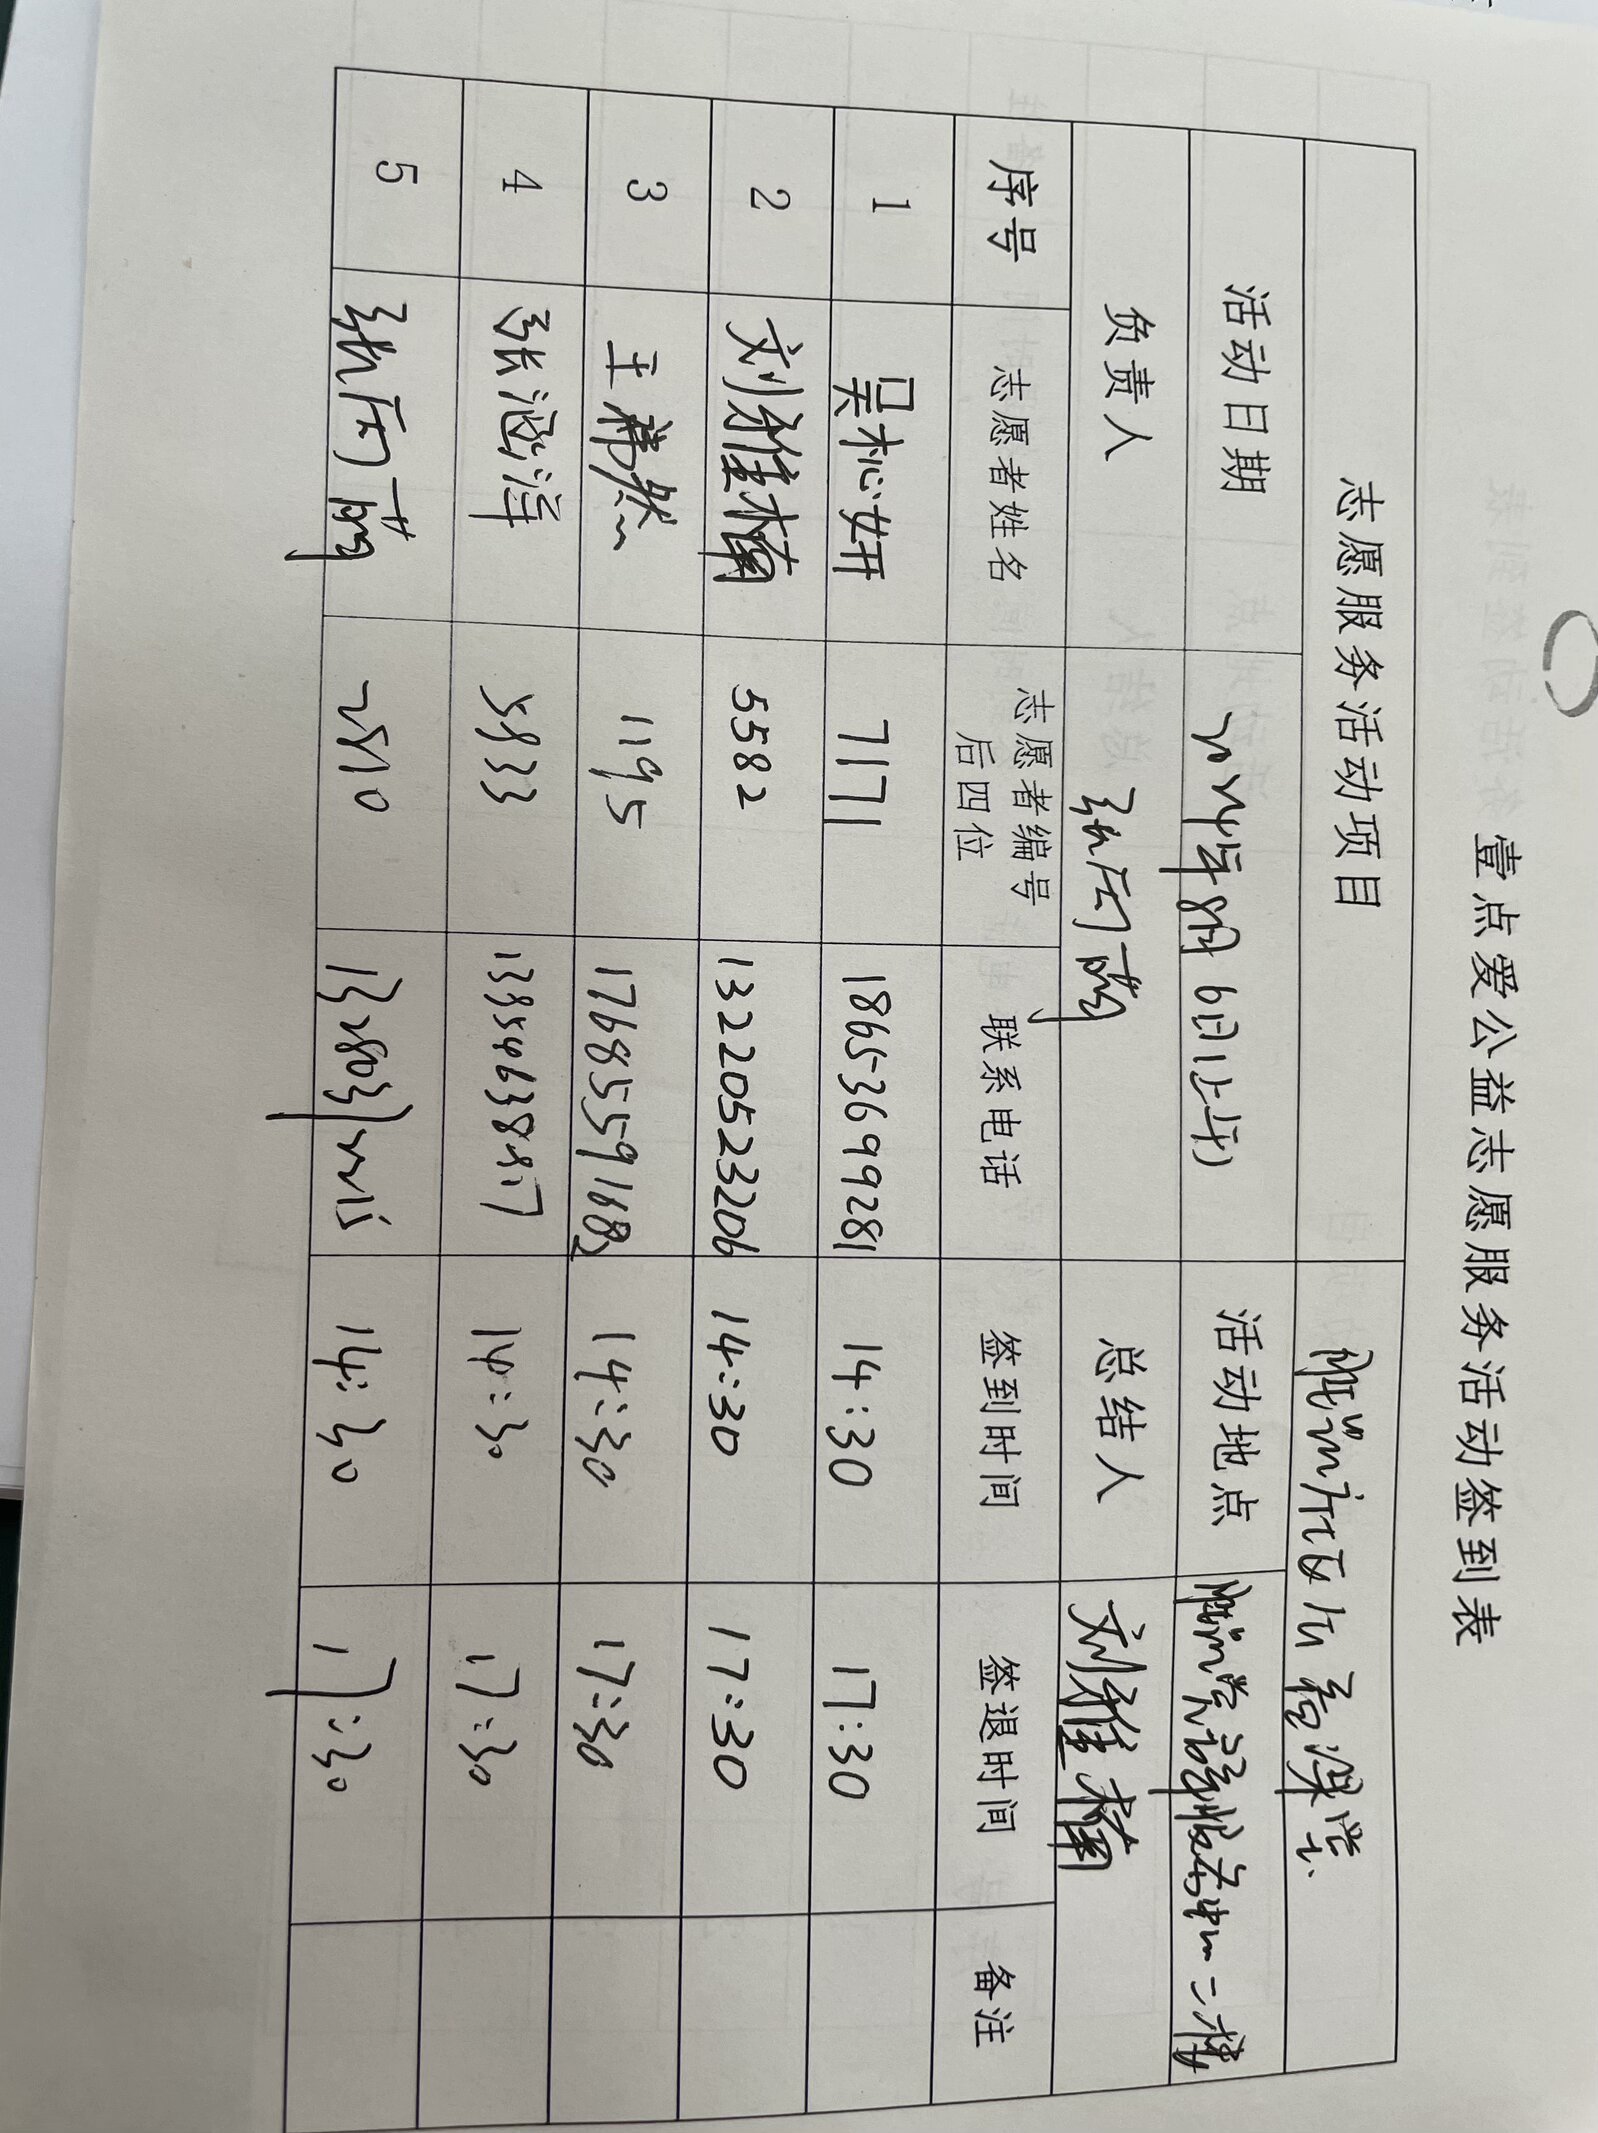 壹点爱公益志愿服务活动签到表
志愿服务活动项目
活动日期 2024年8月6日(上午) 活动地点 二楼
负责人 张 萌 总结人 刘雅楠
序号 志愿者姓名 志愿者编号后四位 联系电话 签到时间 签退时间 备注
1 吴杺妍 7171 18653699281 14:30 17:30
2 刘雅楠 5582 13220523206 14:30 17:30
3 王 然 1195 17685591682 14:30 17:30
4 张涵洋 14:30 17:30
5 张 萌 2510 14:30 17:30